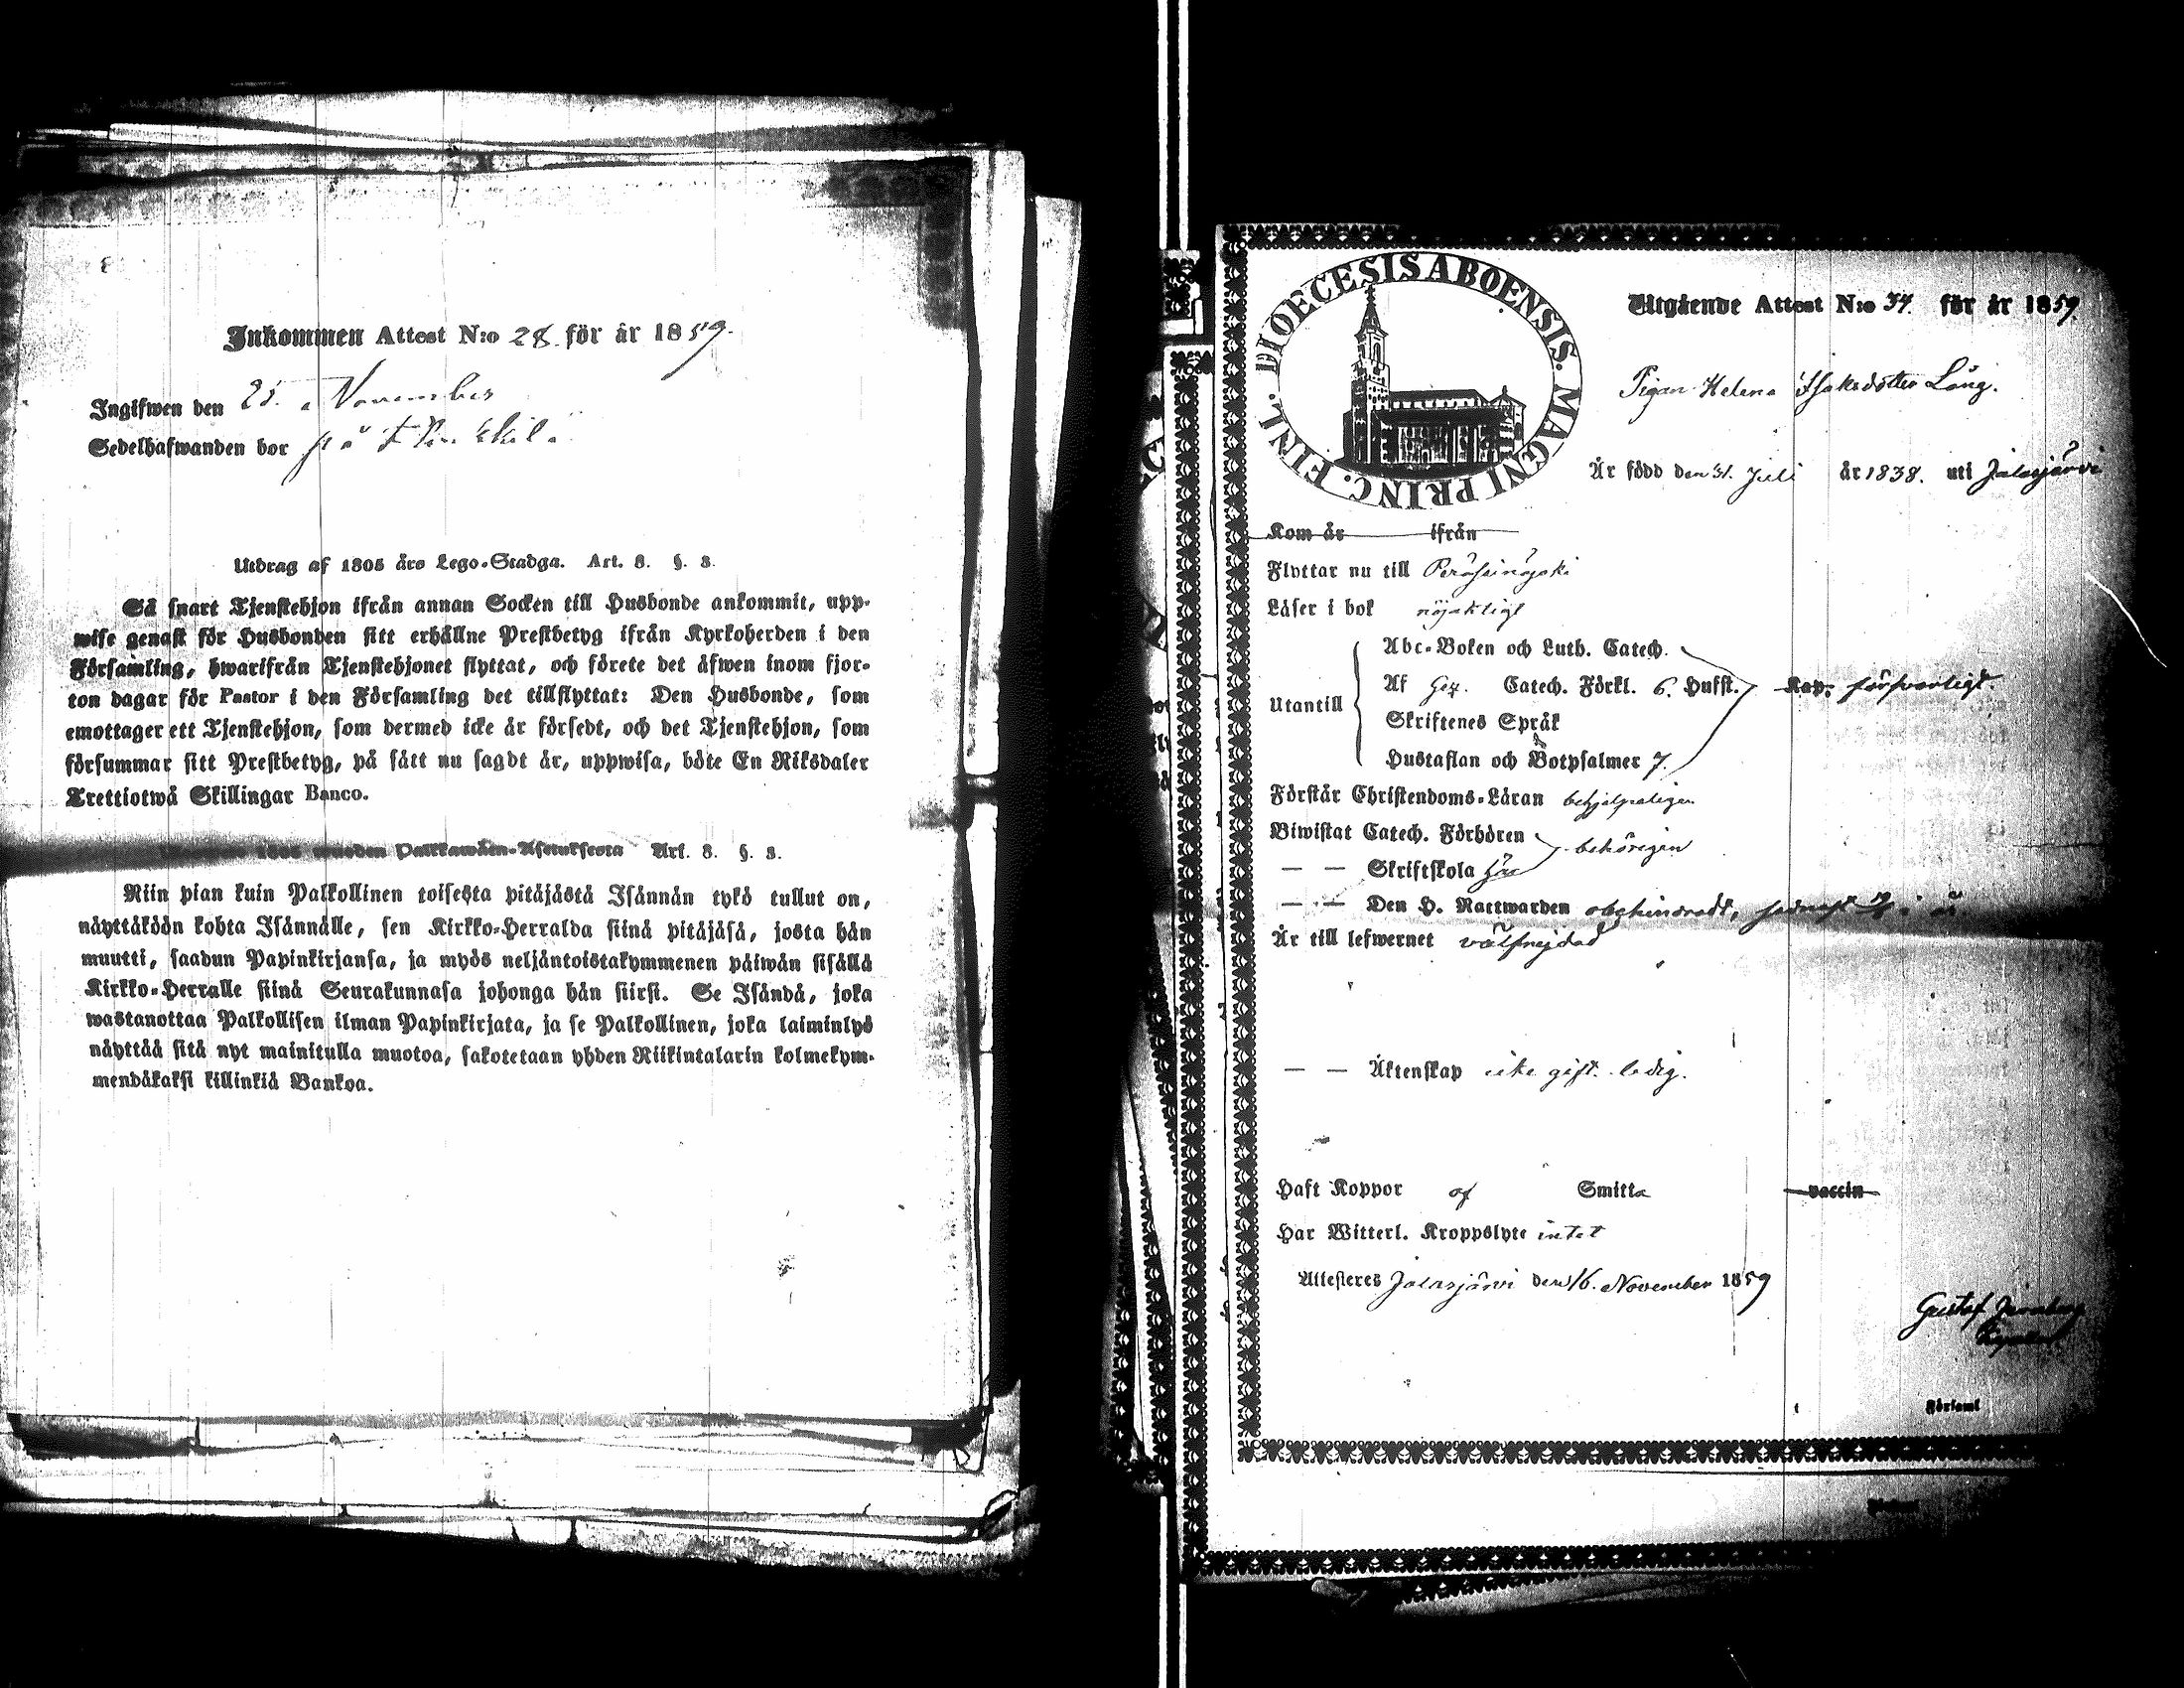 Inkommen Attest N:o 28. för år 1859.
Ingifwen den 25. November
Sedelhafwanden bor på
Utdrag af 1805 års Lego-Stadga. Art. 8. §. 3.
Så snart Tjenstehjon ifrån annan Socken till Husbonde ankommit, upp-
wise genast för Husbonden sitt erhållne Prestbetyg ifrån Kyrkoherden i den
Församling, hwarifrån Tjenstehjonet flyttat, och förete det äfwen inom fjor-
ton dagar för Pastor i den Församling det tillflyttat: Den Husbonde, som
emottager ett Tjenstehjon, som dermed icke är försedt, och det Tjenstehjon, som
försummar sitt Prestbetyg, på sätt nu sagdt är, uppwisa, böte En Riksdaler
Trettiotwå Skillingar Banco.
1805 wuoden Palkkawäen-Asetuksesta Art. 8. §. 3.
Niin pian kuin Palkollinen toisesta pitäjästä Isännän tykö tullut on,
näyttäköön kohta Isännälle, sen Kirkko-Herralda siinä pitäjäsä, josta hän
muutti, saadun Papinkirjansa, ja myös neljäntoistakymmenen päiwän sisällä
Kirkko-Herralle siinä Seurakunnasa johonga hän siirsi. Se Isändä, joka
wastanottaa Palkollisen ilman Papinkirjata, ja se Palkollinen, joka laiminlyö
näyttää sitä nyt mainitulla muotoa, sakotetaan yhden Riikintalarin kolmekym-
mendäkaksi killinkiä Bankoa.
DIOECESIS ABOENSIS. MAGNI PRINC. FINL.
Utgående Attest N:o 34. för år 1859.
Pigan Helena Isaksdotter Lång.
Är född den 31. Juli år 1838. uti Jalasjärvi
Kom år ifrån
Flyttar nu till Peräseinäjoki
Läser i bok nöjaktigt
Utantill
Abc-Boken och Luth. Catech.
Af Gez. Catech. Förkl. 6. Hufst. Kap. försvarligt.
Skriftenes Språk
Hustaflan och Botpsalmer 7.
Förstår Christendoms-Läran behjelpeligen
Biwistat Catech. Förhören behörigen
— — Skriftskola här
— — Den H. Nattwarden obehindradt, sednast
Är till lefwernet välfrejdad
— — Äktenskap icke gift. ledig.
Haft Koppor af Smitta vaccin
Har Witterl. Kroppslyte intet
Attesteres Jalasjärvi den 16. November 1859
Gustaf
Församl